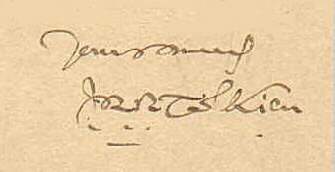 Yours sincerely
J.R.R. Tolkien